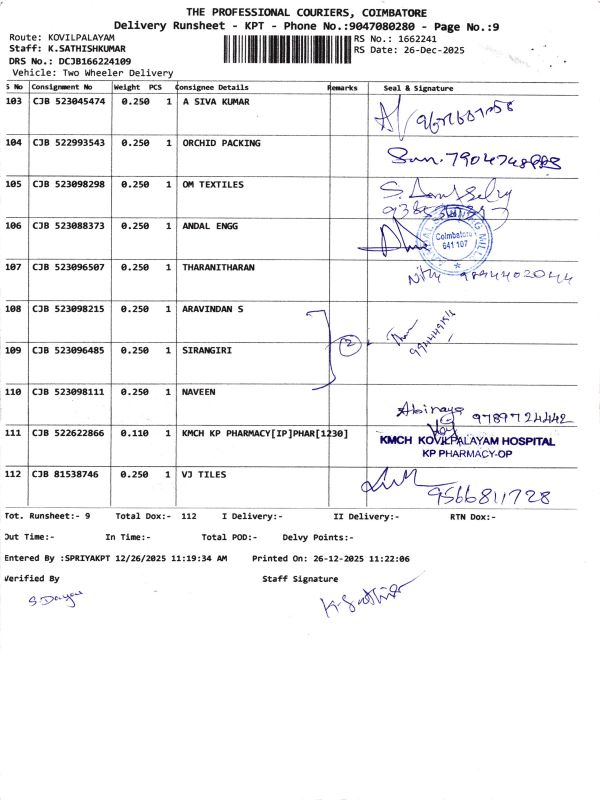 THE PROFESSIONAL COURIERS, COIMBATORE
Delivery Runsheet - KPT - Phone No.:9047080280 - Page No.:9
Route: KOVILPALAYAM RS No.: 1662241
Staff: K.SATHISHKUMAR RS Date: 26-Dec-2025
DRS No.: DCJB166224109
Vehicle: Two Wheeler Delivery
S No Consignment No Weight PCS Consignee Details Remarks Seal & Signature
103 CJB 523045474 0.250 1 A SIVA KUMAR
104 CJB 522993543 0.250 1 ORCHID PACKING
105 CJB 523098298 0.250 1 OM TEXTILES
106 CJB 523088373 0.250 1 ANDAL ENGG
Coimbatore
641 107
107 CJB 523096507 0.250 1 THARANITHARAN
108 CJB 523098215 0.250 1 ARAVINDAN S
2
109 CJB 523096485 0.250 1 SIRANGIRI
110 CJB 523098111 0.250 1 NAVEEN Abinaya 9789724442
111 CJB 522622866 0.110 1 KMCH KP PHARMACY[IP]PHAR[1230] KMCH KOVILPALAYAM HOSPITAL
KP PHARMACY-OP
112 CJB 81538746 0.250 1 VJ TILES 9566811728
Tot. Runsheet:- 9 Total Dox:- 112 I Delivery:- II Delivery:- RTN Dox:-
Out Time:- In Time:- Total POD:- Delvy Points:-
Entered By :SPRIYAKPT 12/26/2025 11:19:34 AM Printed On: 26-12-2025 11:22:06
Verified By Staff Signature